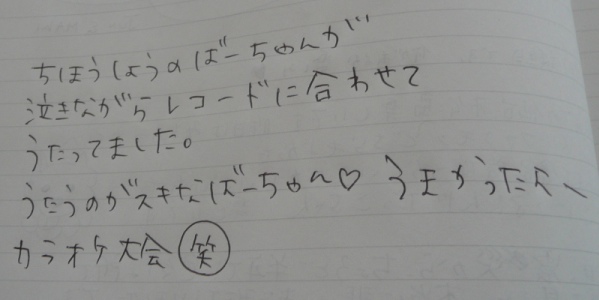 ちほうしょうのばーちゃんが
泣きながらレコードに合わせて
うたってました。
うたうのがスキなばーちゃん♡ うまかったよ〜
カラオケ大会 笑